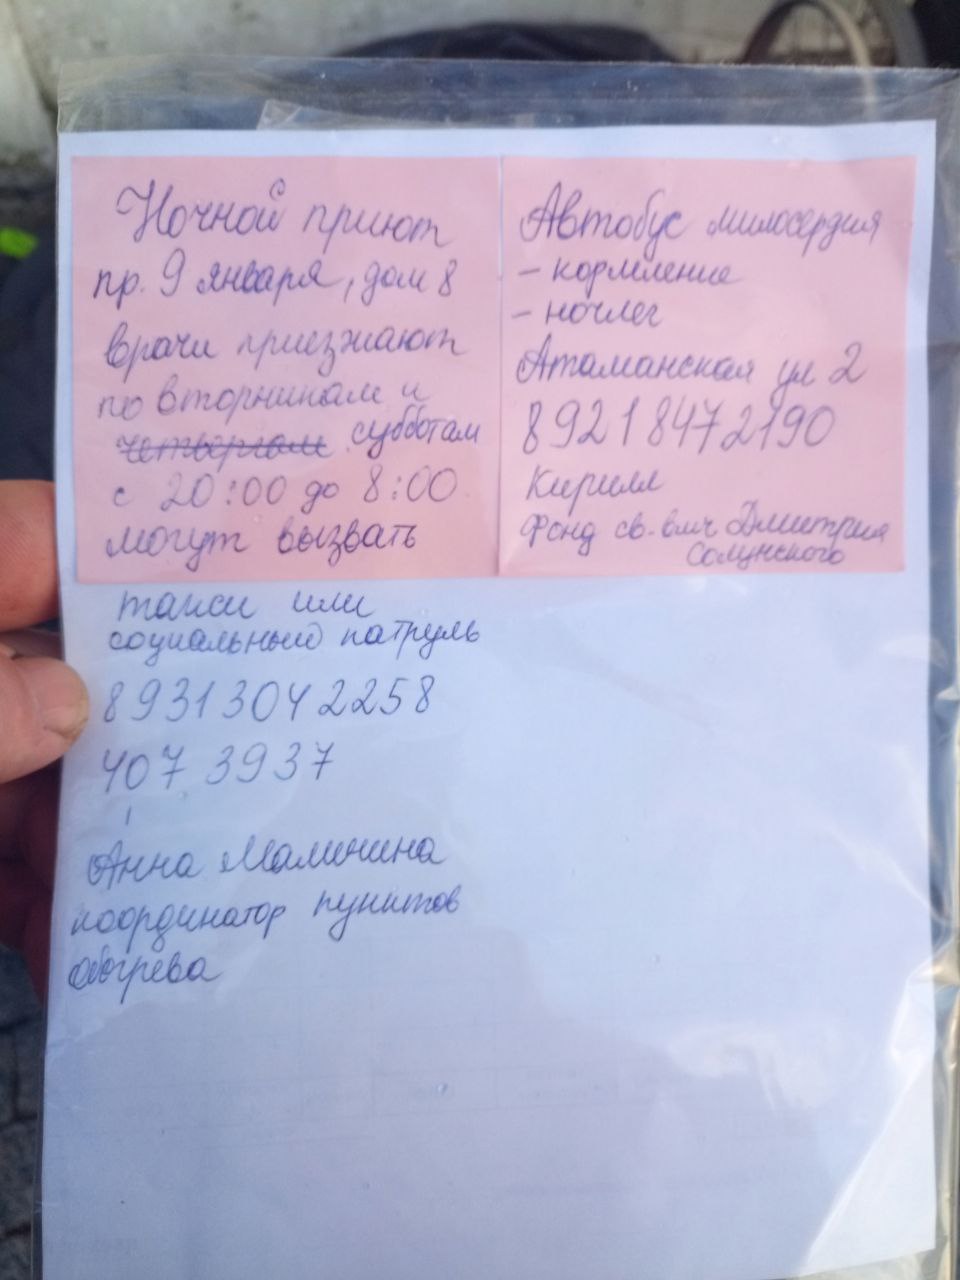 Ночной приют
пр. 9 января, дом 8
врачи приезжают
по вторникам и
четвергам субботам
с 20:00 до 8:00
могут вызвать
такси или
социальный патруль
8931 304 2258
407 3937
Анна Малинина
координатор пунктов
обогрева
Автобус милосердия
- кормление
- ночлег
Атаманская ул 2
8921 847 2190
Кирилл
Фонд св. вмч Дмитрия
Солунского